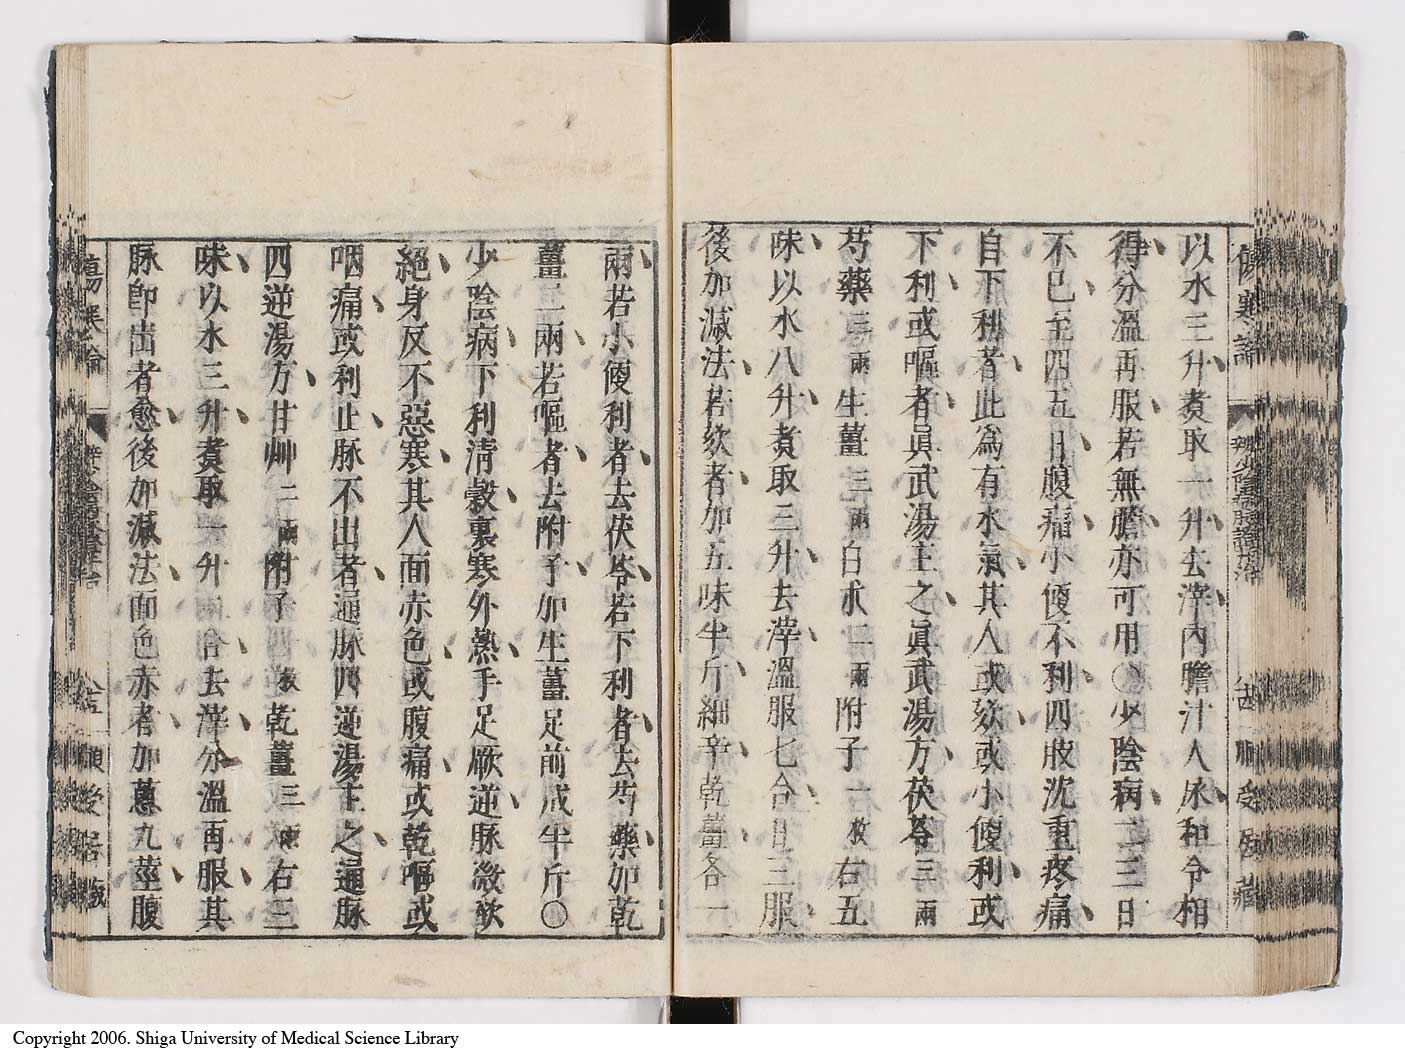 以水三升煮取一升去滓內膽汁人尿和令相
得分溫再服若無膽亦可用○少陰病二三日
不已至四五日腹痛小便不利四肢沈重疼痛
自下利者此為有水氣其人或欬或小便利或
下利或嘔者眞武湯主之眞武湯方茯苓三兩
芍藥三兩生薑三兩白朮二兩附子一枚右五
味以水八升煮取三升去滓溫服七合日三服
後加減法若欬者加五味半斤細辛乾薑各一
兩若小便利者去茯苓若下利者去芍藥加乾
薑二兩若嘔者去附子加生薑足前成半斤○
少陰病下利清穀裏寒外熱手足厥逆脉微欲
絕身反不惡寒其人面赤色或腹痛或乾嘔或
咽痛或利止脉不出者通脉四逆湯主之通脉
四逆湯方甘艸二兩附子枚乾薑三兩右三
味以水三升煮取一升二合去滓分溫再服其
脉卽出者愈後加減法面色赤者加蔥九莖腹
Copyright 2006. Shiga University of Medical Science Library